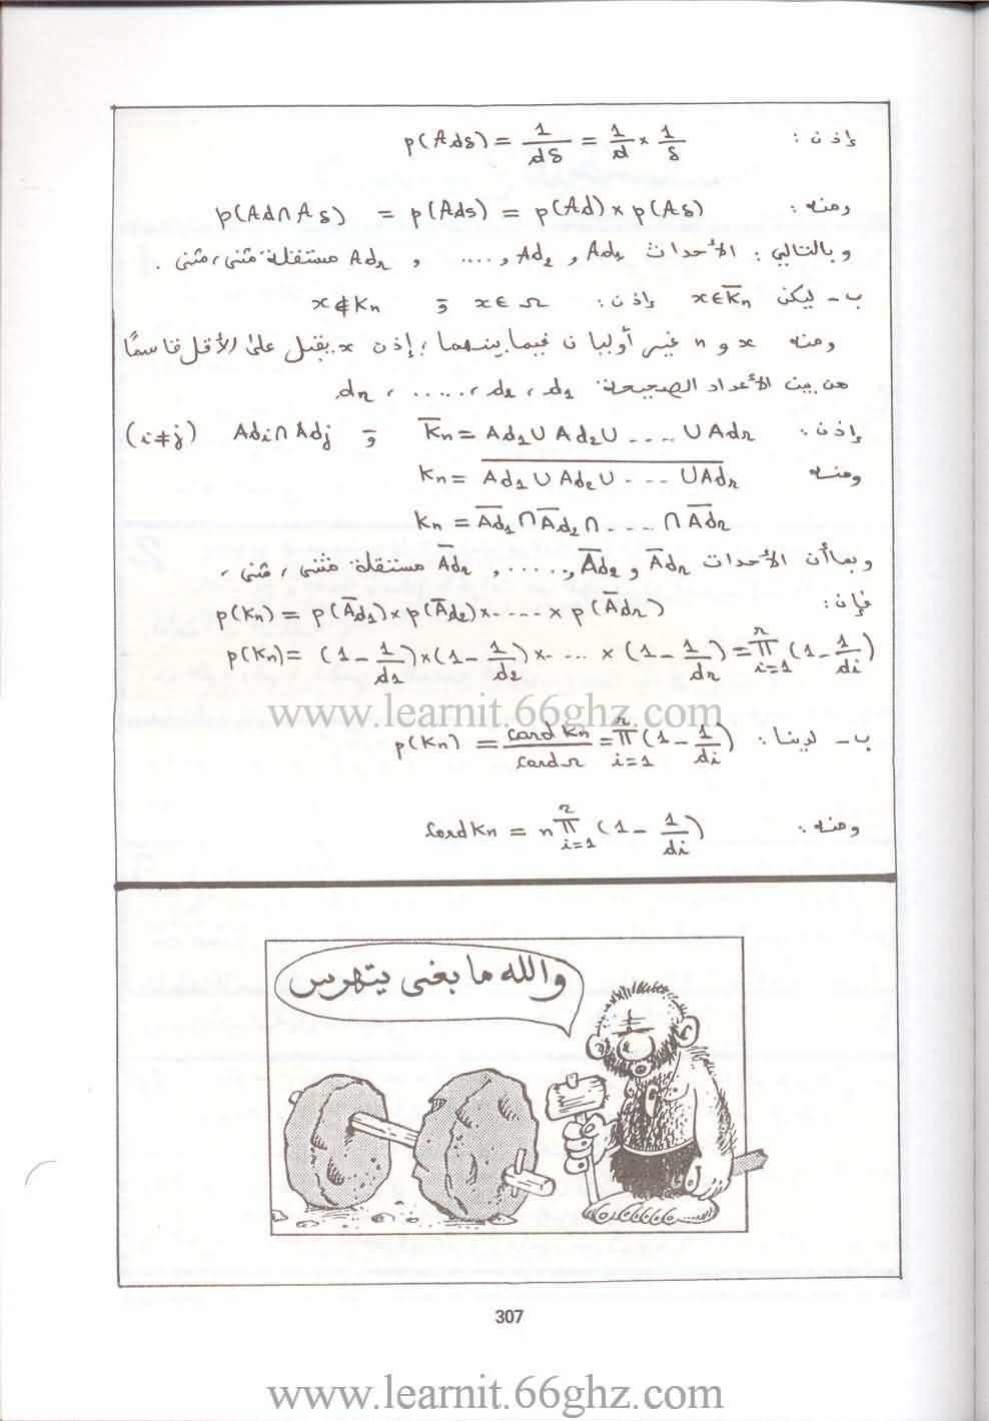 إذن : p(Adδ) = 1/dδ = 1/d × 1/δ
ومنه : p(Ad∩Aδ) = p(Adδ) = p(Ad) × p(Aδ)
وبالتالي : الأحداث Ad₁ , Ad₂ , .... , Adr مستقلة مثنى، مثنى .
ب - ليكن x∈K̅n إذن : x∈Ω و x∉Kn
ومنه x و n غير أوليان فيما بينهما ؛ إذن x يقبل على الأقل قاسمًا
من بين الأعداد الصحيحة d₁ ، d₂ ، ..... ، dr
إذن : K̅n = Ad₁∪Ad₂∪....∪Adr و Adi∩Adj (i≠j)
ومنه Kn = \overline{Ad₁∪Ad₂∪...∪Adr}
Kn = A̅d₁∩A̅d₂∩....∩A̅dr
وبما أن الأحداث A̅d₁ , A̅d₂ , ..... , A̅dr مستقلة مثنى ، مثنى ،
فإن : p(Kn) = p(A̅d₁)×p(A̅d₂)×.....×p(A̅dr)
p(Kn) = (1 - 1/d₁)×(1 - 1/d₂)×....×(1 - 1/dr) = π_{i=1}^{r} (1 - 1/di)
www.learnit.66ghz.com
ب - لدينا : p(Kn) = card Kn / card Ω = π_{i=1}^{r} (1 - 1/di)
ومنه : Card Kn = n π_{i=1}^{r} (1 - 1/di)
والله ما بغى يتهرس
307
www.learnit.66ghz.com